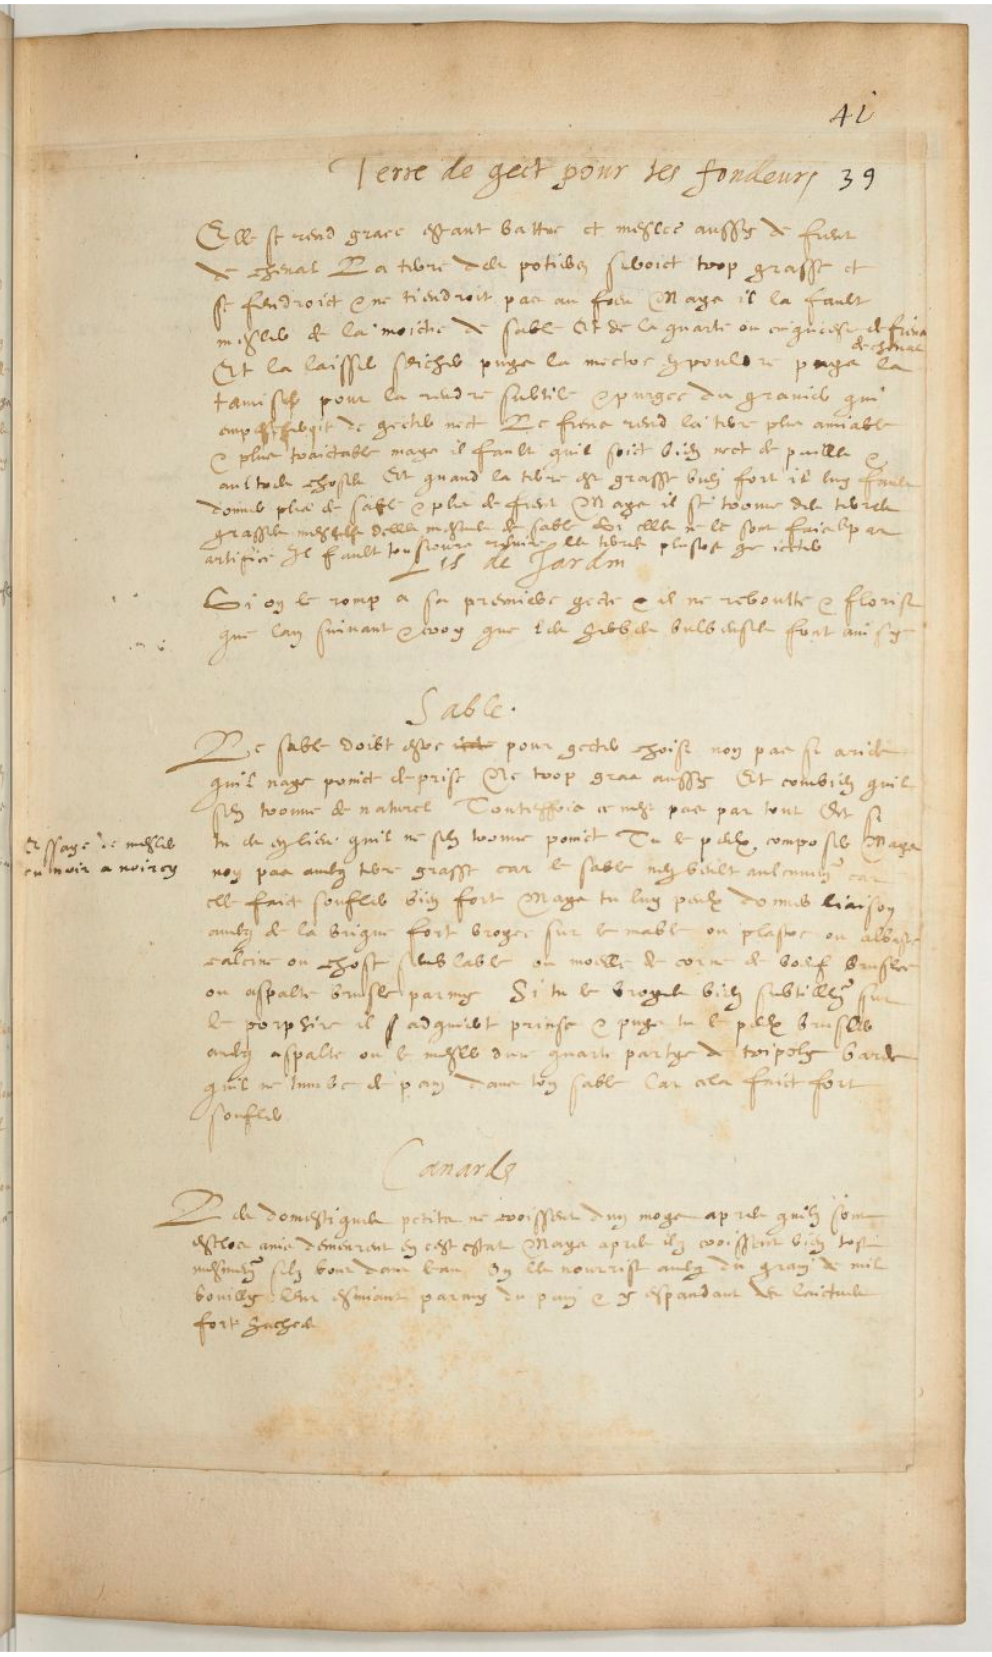 41
Terre de gect pour les fondeurs 39
Elle se rend grace estant battue et meslee aussy de fient
de cheval La terre des potiers seroict trop grasse et
se fendroict & ne tiendroit pas au foeu Mays il la fault
mesler de la moictie de sable Et de la quarte ou cinquiesme de fiens
de cheval
Et la laisser seicher puys la mectre en pouldre puys la
tamiser pour la rendre subtile & purgee du gravier qui
empescheroit de gecter nect Le fiens rend la terre plus amiable
& plus traictable mays il fault quil soict bien nect de paille &
aultres choses Et quand la terre est grasse bien fort il luy fault
donner plus de sable & plus de fient Mays il se troeuve des terres
grasses meslees delles mesmes de sable Si elles ne le sont faicles par
artifice Il fault tousjours les terres plustost que
Lis de Jardin
Si on le romp a sa premiere gecte & il ne reboutte & florist
que lan suivant & croy que les herbes bulbeuses font ainsy
Sable.
Le sable doibt estre pour gecter choisi non pas si aride
quil naye poinct de prise Ne trop gras aussy Et combien quil
sen troeuve de naturel Toutesfois ce nest pas par tout Et si
tu es en lieu quil ne sen troeuve poinct Tu le peulx composer Mays
Essaye de mesler
du noir a noircy
non pas avecq terre grasse car le sable nen veult aulcunem{ent} car
elle faict soufler bien fort Mays tu luy peulx donner liaison
avecq de la brique fort broyee sur le mabre ou plastre ou albastre
calcine ou chose semblable ou moelle de corne de boeuf bruslee
ou aspalte brusle parmy Si tu le broyes bien subtillem{ent} sur
le porphire il adquiert prinse & puys tu le peulx brusler
avecq aspalte ou le mesler dune quarte partye de tripoly Garde
quil ne tumbe de pain dans ton sable Car cela faict fort
soufler
Canards
Les domestiques petits ne croissent dun moys apres quilz sont
esclos ains demeurent en cest estat Mays apres ilz croissent bien tost
mesmem{ent} silz vont dans leau On les nourrist avecq du grain de mil
bouilly leur esmiant parmy du pain & y espandant des laictues
fort hachees